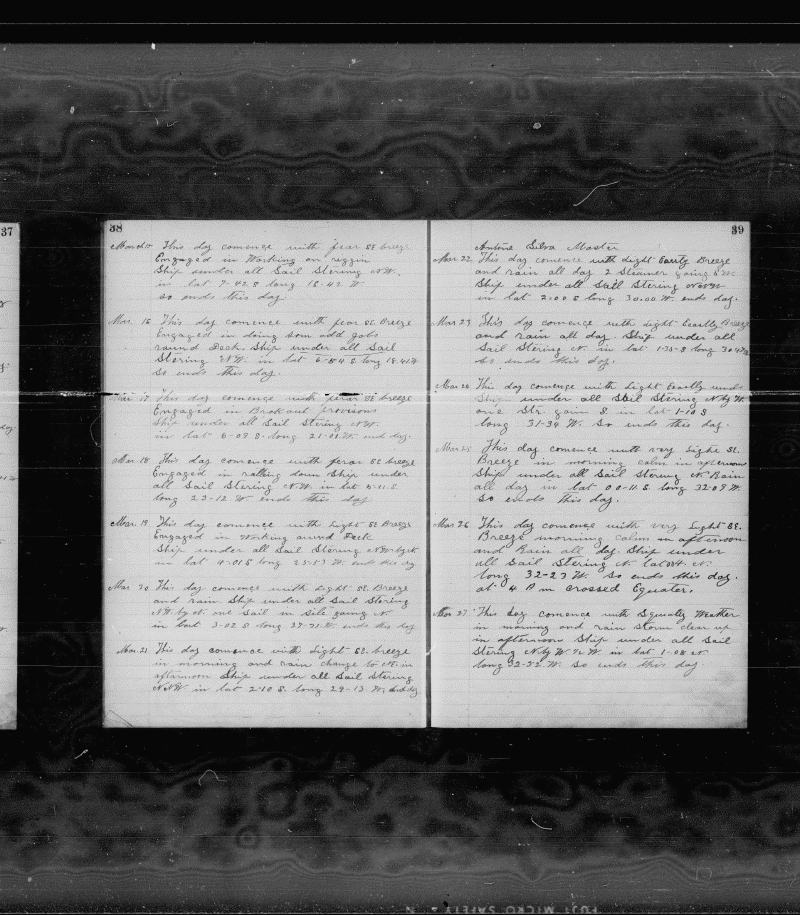 37
38
March 15 This day comence with fear SE breeze
Engaged in Working on riggin
Ship under all Sail Stering NW.
in lat 7-42 S long 18-42 W
so ends this day
Mar. 16 This day comence with fear SE Breeze
Engaged in doing som odd jobs
round Deck. Ship under all Sail
Stering NW. in lat 6-54 S. long 18.41 W
so ends this day.
Mar 17 This day comence with fear SE breeze
Engaged in Brokout provisions
Ship under all Sail Stering NW.
in lat 6-03 S. long 21-01 W. ends day.
Mar. 18 This day comence with fear SE breeze
Engaged in ratling down Ship under
all Sail Stering NW. in lat S.
long 23-12 W ends this day
Mar. 19 This day comence with Light SE Breeze
Engaged in Working around Deck
Ship under all Sail Stering NW by N
in lat 4-01 S long 25-53 W. ends this day
Mar 20 This day comence with Light SE. Breeze
and rain Ship under all Sail Stering
NW by N. one Sail in Site going N.
in lat 3-02 S long W. ends this day
Mar. 21 This day comence with Light SE. breeze
in morning and rain change to N. in
afternoon Ship under all Sail Stering
NNW. in lat 2-10 S. long 29-13 W. End day
39
Antone Silva Master
Mar. 22. This day comence with Light Eastly Breeze
and rain all day 2 Steamer going
Ship under all Sail Stering NNW
in lat 2-00 S long 30.00 W. ends day.
Mar 23 This day comence with Light Eastly Breeze
and rain all day Ship under all
Sail Stering N. in lat 1-35-S long 30
So ends this day.
Mar 24 This day comence with Light Eastly winds
Ship under all Sail Stering N by W.
one Str. goin S in lat 1-10 S
long 31-34 W. So ends this day.
Mar 25 This day comence with very Light SE.
Breeze in morning calm in afternoon
Ship under all Sail Stering N. Rain
all day in lat 00-11 S. long 32-09 W.
So ends this day.
Mar. 26 This day comence with very Light SE.
Breeze morning calm in afternoon
and Rain all day. Ship under
all Sail Stering N. lat N.
long 32-23 W. So ends this day.
at 4 A m crossed Equater.
Mar 27 This day comence with Squaly Weather
in morning and rain Storm clear up
in afternoon Ship under all Sail
Stering N by W N W. in lat 1-08 N.
long 32-22 W. So ends this day.
FUJI MICRO SAFETY